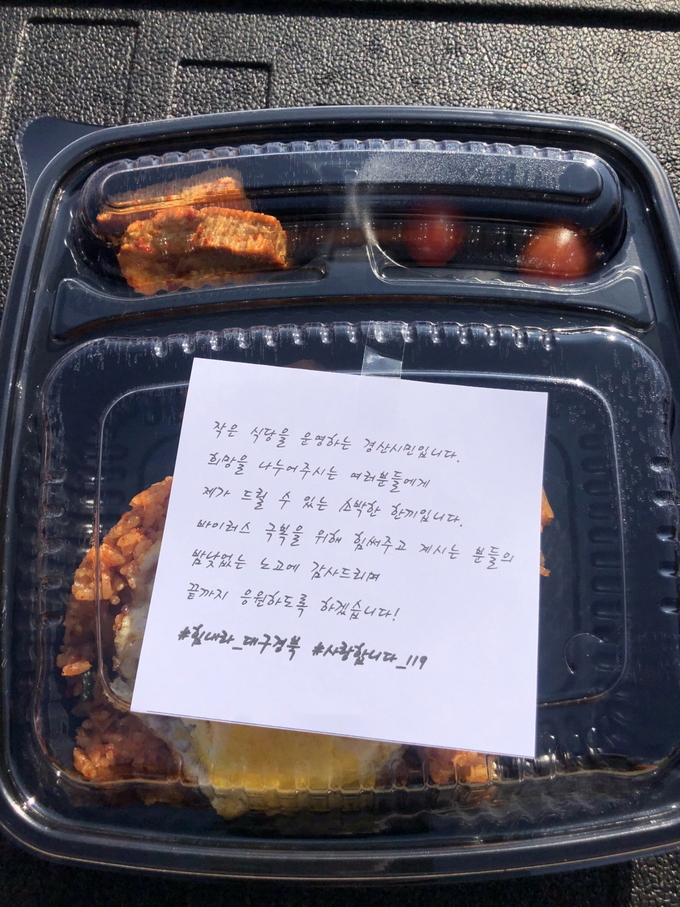 작은 식당을 운영하는 경산시민입니다.
희망을 나누어주시는 여러분들에게
제가 드릴 수 있는 소박한 한끼입니다.
바이러스 극복을 위해 힘써주고 계시는 분들의
밤낮없는 노고에 감사드리며
끝까지 응원하도록 하겠습니다!
#힘내라_대구경북 #사랑합니다_119